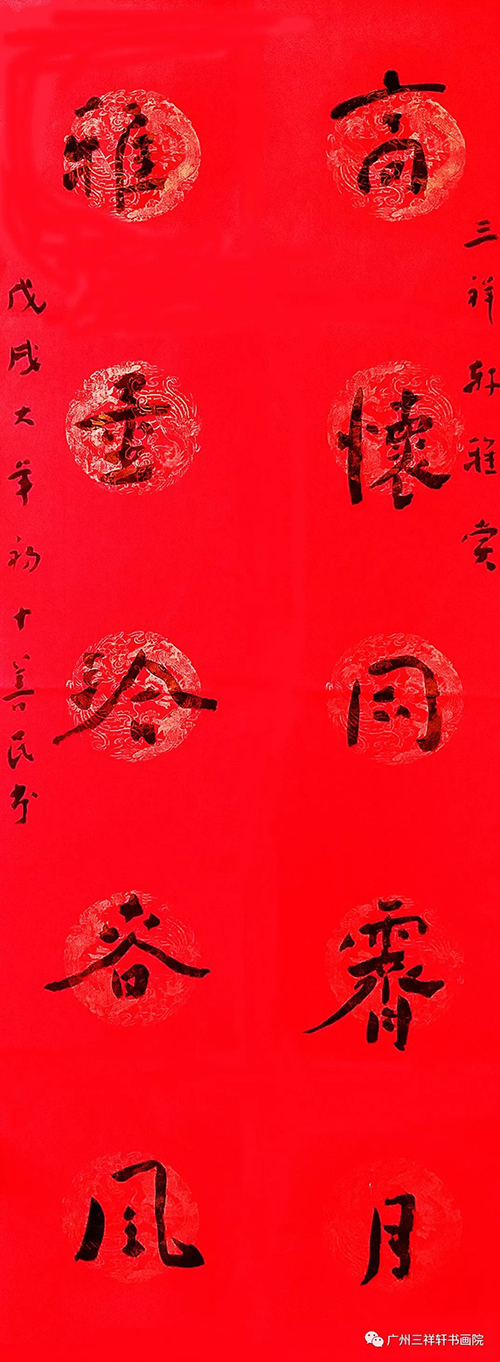 三祥轩雅赏
高懷同霽月
雅量洽春風
戊戌大年初十善民书
广州三祥轩书画院